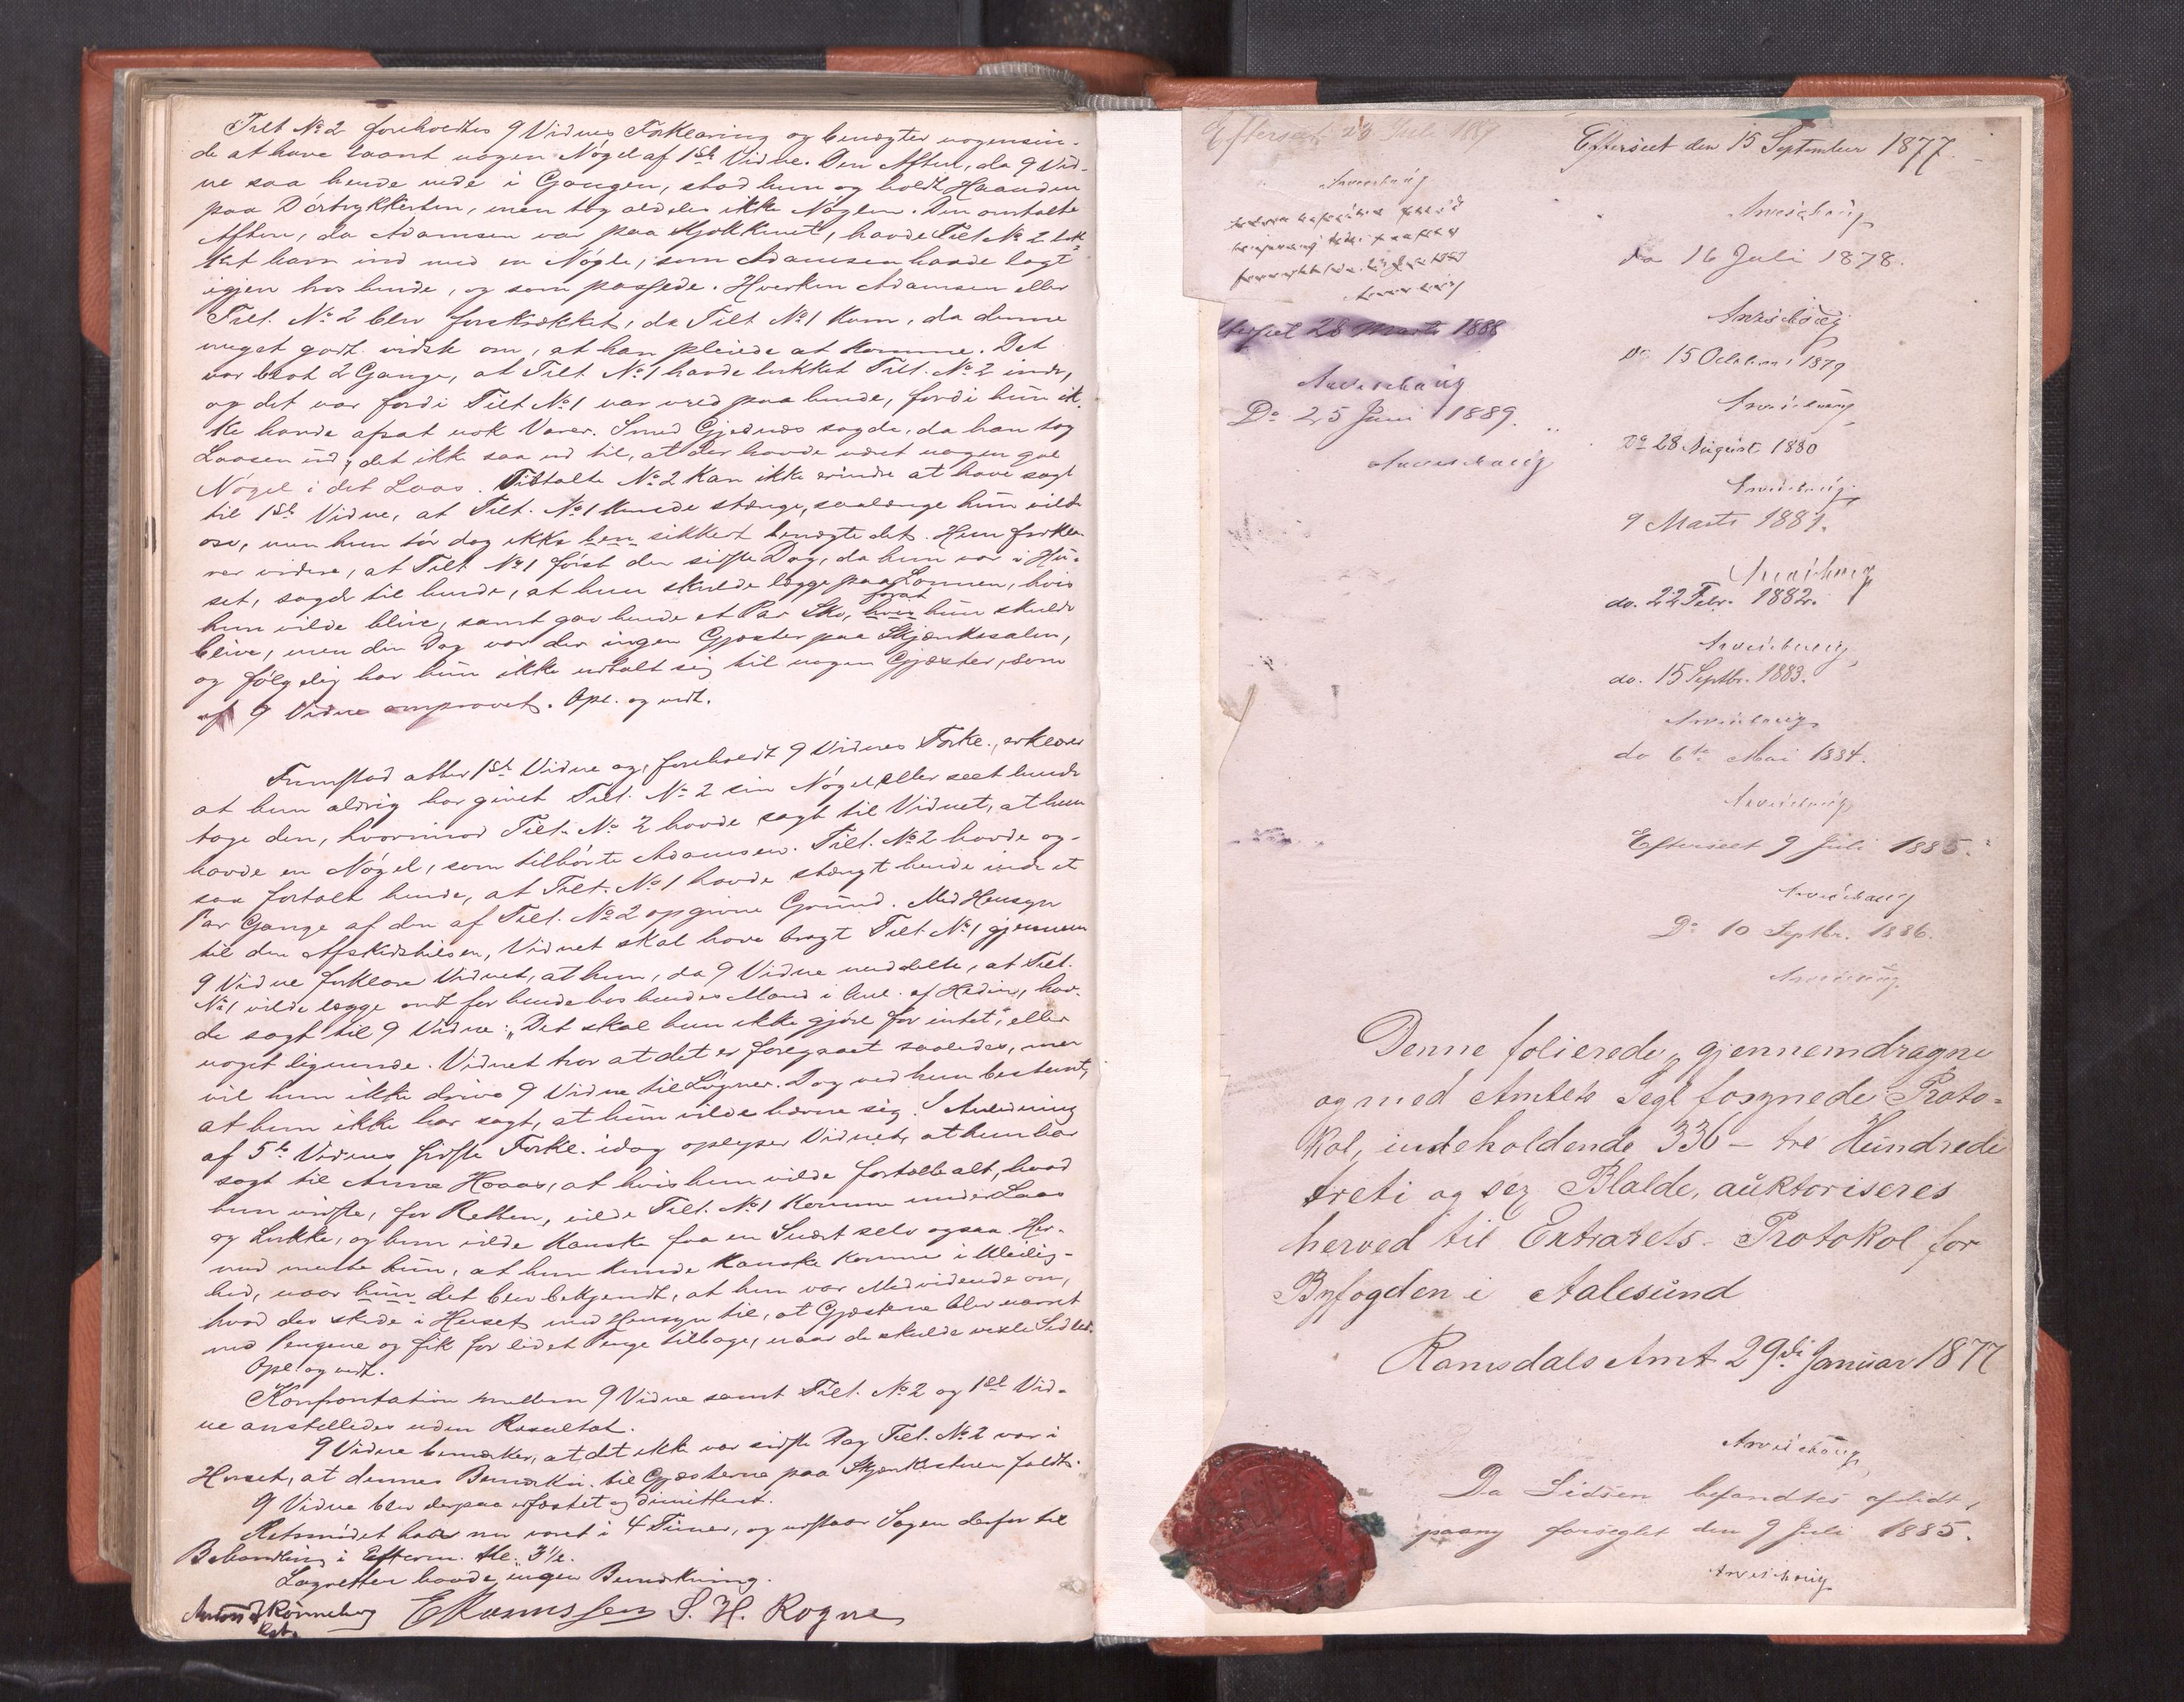 Tilt No 2 foreholdtes 9 Vidnes Forklaring og benegter nogensin-
de at have laant nogen Nøgel af 1ste Vidne. Den Aften, da 9 Vid-
ne saa hende nede i Gangen, stod hun og holdt Haanden
paa Dørtrykkerten, men tog aldeles ikke Nøglen. Den omtalte
Aften, da Adamsen var paa Kjøkkenet, havde Tilt No 2 luk-
ket ham ind med en Nøgle, som Adamsen havde lagt
igjen hos hende, og som passede. Hverken Adamsen eller
Tilt. No 2 blev forskrækket, da Tilt No 1 kom, da denne
meget godt vidste om, at han pleiede at komme. Det
var blot 2 Gange, at Tilt. No 1 havde lukket Tilt. No 2 inde,
og det var fordi Tilt No 1 var vred paa hende, fordi hun ik-
ke havde afsat nok Varer. Smed Gjednæs sagde, da han tog
Laasen ud, det ikke saa ud til, at der havde været nogen gal
Nøgel i det Laas. Tiltalte No 2 kan ikke erindre at have sagt
til 1ste Vidne, at Tilt. No 1 kunde stænge, saalænge hun vilde
osv, men hun tør dog ikke hen sikkert benegte det. Hun forkla-
rer videre, at Tilt No 1 først den sidste Dag, da hun var i Hu-
set, sagde til hende, at hun skulde lægge paa Lønnen, hvis
hun vilde blive, samt gav hende et Par Sko, hvis forat hun skulde
blive, men den Dag var der ingen Gjæster paa Skjænkesalen,
og følgelig har hun ikke udtalt sig til nogen Gjæster, som
af 9 Vidne omprovet. Opl. og vedt.
Fremstod atter 1ste Vidne og, foreholdt 9 Vidnes Forkl., erklærer
at hun aldrig har givet Tilt. No 2 sin Nøgel eller seet hende
tage den, hvorimod Tilt. No 2 havde sagt til Vidnet, at hun
havde en Nøgel, som tilhørte Adamsen. Tilt. No 2 havde og-
saa fortalt hende, at Tilt. No 1 havde stængt hende inde et
Par Gange af den af Tilt. No 2 opgivne Grund. Med Hensyn
til den Afskedshilsen, Vidnet skal have bragt Tilt No 1 gjennem
9 Vidne forklarer Vidnet, at hun, da 9 Vidne meddelte, at Tilt.
No 1 vilde lægge ondt for hende hos hendes Mand i Anl. af Hedin, hav-
de sagt til 9 Vidne: "Det skal hun ikke gjøre for intet", eller
noget lignende. Vidnet tror at det er foregaaet saaledes, men
vil hun ikke drive 9 Vidne til Løgner. Dog ved hun bestemt,
at hun ikke har sagt, at hun vilde hævne sig. I Anledning
af 5te Vidnes sidste Forkl. idag oplyser Vidnet, at hun har
sagt til Anne Hoaas, at hvis hun vilde fortælle alt, hvad
hun vidste, for Retten, vilde Tilt. No 1 komme under Laas
og Lukke, og hun vilde kanske faa en Snært selv ogsaa. Her-
med mente hun, at hun kunde kanske komme i Uleilig-
hed, naar hun det blev bekjendt, at hun var Medvidende om,
hvad der skede i Huset med Hensyn til, at Gjæsterne blev narret
med Pengene og fik for lidet Penge tilbage, naar de skulde vexle Sedler.
Opl. og vedt.
Konfrontation mellem 9 Vidne samt Tilt. No 2 og 1ste Vid-
ne anstilledes uden Resultat.
9 Vidne bemærker, at det ikke var sidste Dag Tilt. No 2 var i
Huset, at dennes Bemærkn. til Gjæsterne paa Skjænkestuen faldt.
9 Vidne blev derpaa edfæstet og dimitteret.
Retsmødet havde nu varet i 4 Timer, og udstaar Sagen derfor til
Behandling i Efterm. Kl. 3 1/2.
Lagretten havde ingen Bemærkning.
Anton Rønneberg E Rasmussen S. H. Rogne
cst.
Efterseet 23 Juli 1887
Arveschoug
Efterseet 28 Marts 1888
Arveschoug
Do 25 Juni 1889.
Arveschoug
Efterseet den 15 September 1877.
Arveschoug
do 16 Juli 1878.
Arveschoug
Do 15 October 1879
Arveschoug
Do 28 August 1880
Arveschoug
9 Marts 1881.
Arveschoug
do. 22 Febr. 1882.
Arveschoug
do. 15 Septbr. 1883.
Arveschoug
do 6te Mai 1884.
Arveschoug
Efterseet 9 Juli 1885.
Arveschoug
Do 10 Septbr. 1886.
Arveschoug
Denne folierede, gjennemdragne
og med Amtets Segl forsynede Proto-
kol, indeholdende 336 - tre Hundrede
treti og sex Blalde, auktoriseres
herved til Extrarets-Protokol for
Byfogden i Aalesund
Romsdals Amt 29de Januar 1877
Arveschoug
Da Lidsen befandtes afslidt,
paany forseglet den 9 Juli 1885.
Arveschoug